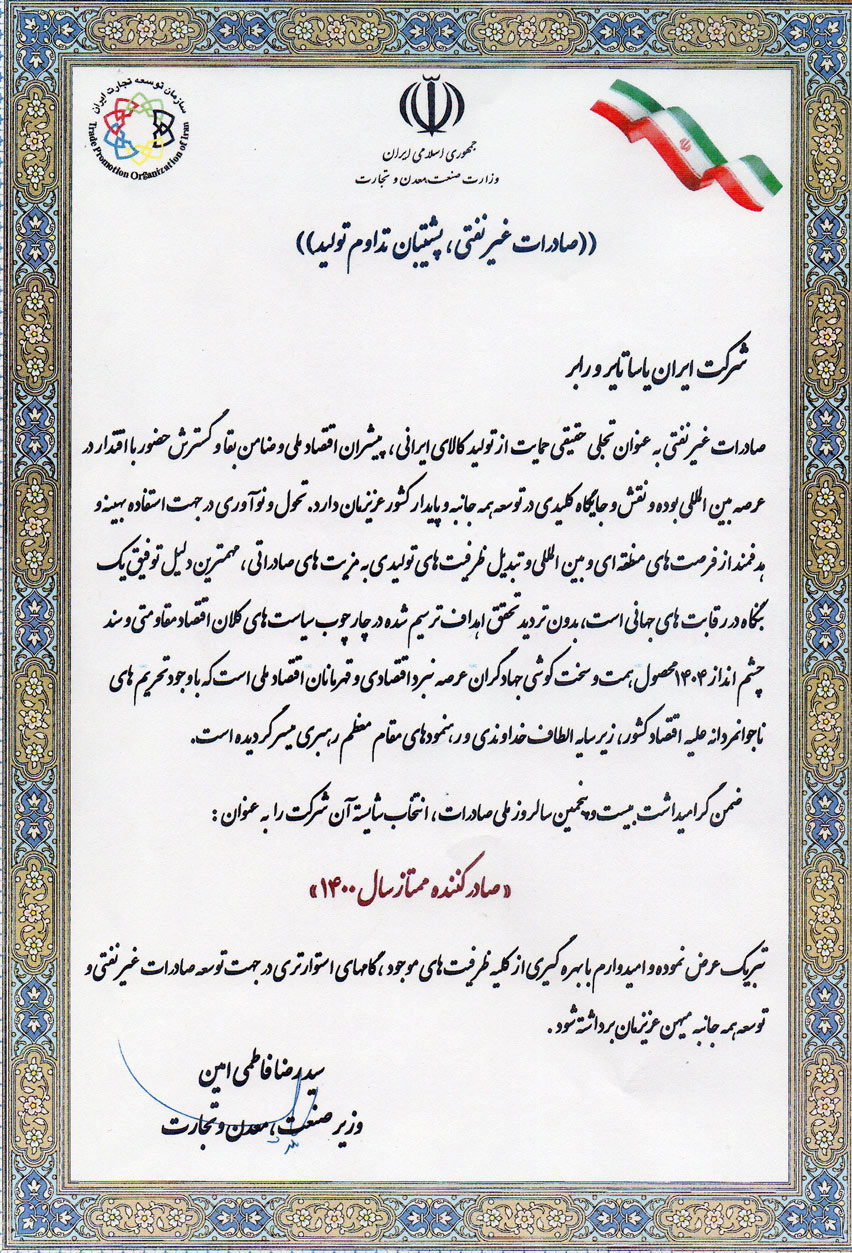 سازمان توسعه تجارت ایران
Trade Promotion Organization of Iran
جمهوری اسلامی ایران
وزارت صنعت،معدن و تجارت
((صادرات غیرنفتی، پشتیبان تداوم تولید))
شرکت ایران یاسا تایر و رابر
صادرات غیرنفتی به عنوان تجلی حقیقی حمایت از تولید کالای ایرانی، پیشران اقتصاد ملی و ضامن بقا و گسترش حضور با اقتدار در
عرصه بین المللی بوده و نقش و جایگاه کلیدی در توسعه همه جانبه و پایدار کشور عزیزمان دارد. تحول و نوآوری در جهت استفاده بهینه و
هدفمند از فرصت های منطقه ای و بین المللی و تبدیل ظرفیت های تولیدی به مزیت های صادراتی، مهمترین دلیل توفیق یک
بنگاه در رقابت های جهانی است، بدون تردید تحقق اهداف ترسیم شده در چارچوب سیاست های کلان اقتصاد مقاومتی و سند
چشم انداز ۱۴۰۴ محصول همت و سخت کوشی جهادگران عرصه نبرد اقتصادی و قهرمانان اقتصاد ملی است که با وجود تحریم های
ناجوانمردانه علیه اقتصاد کشور، زیر سایه الطاف خداوندی و رهنمودهای مقام معظم رهبری میسر گردیده است.
ضمن گرامیداشت بیست و پنجمین سالروز ملی صادرات، انتخاب شایسته آن شرکت را به عنوان :
«صادرکننده ممتاز سال ۱۴۰۰»
تبریک عرض نموده و امیدوارم با بهره گیری از کلیه ظرفیت های موجود، گامهای استوارتری در جهت توسعه صادرات غیرنفتی و
توسعه همه جانبه میهن عزیزمان برداشته شود.
سیدرضا فاطمی امین
وزیر صنعت، معدن و تجارت